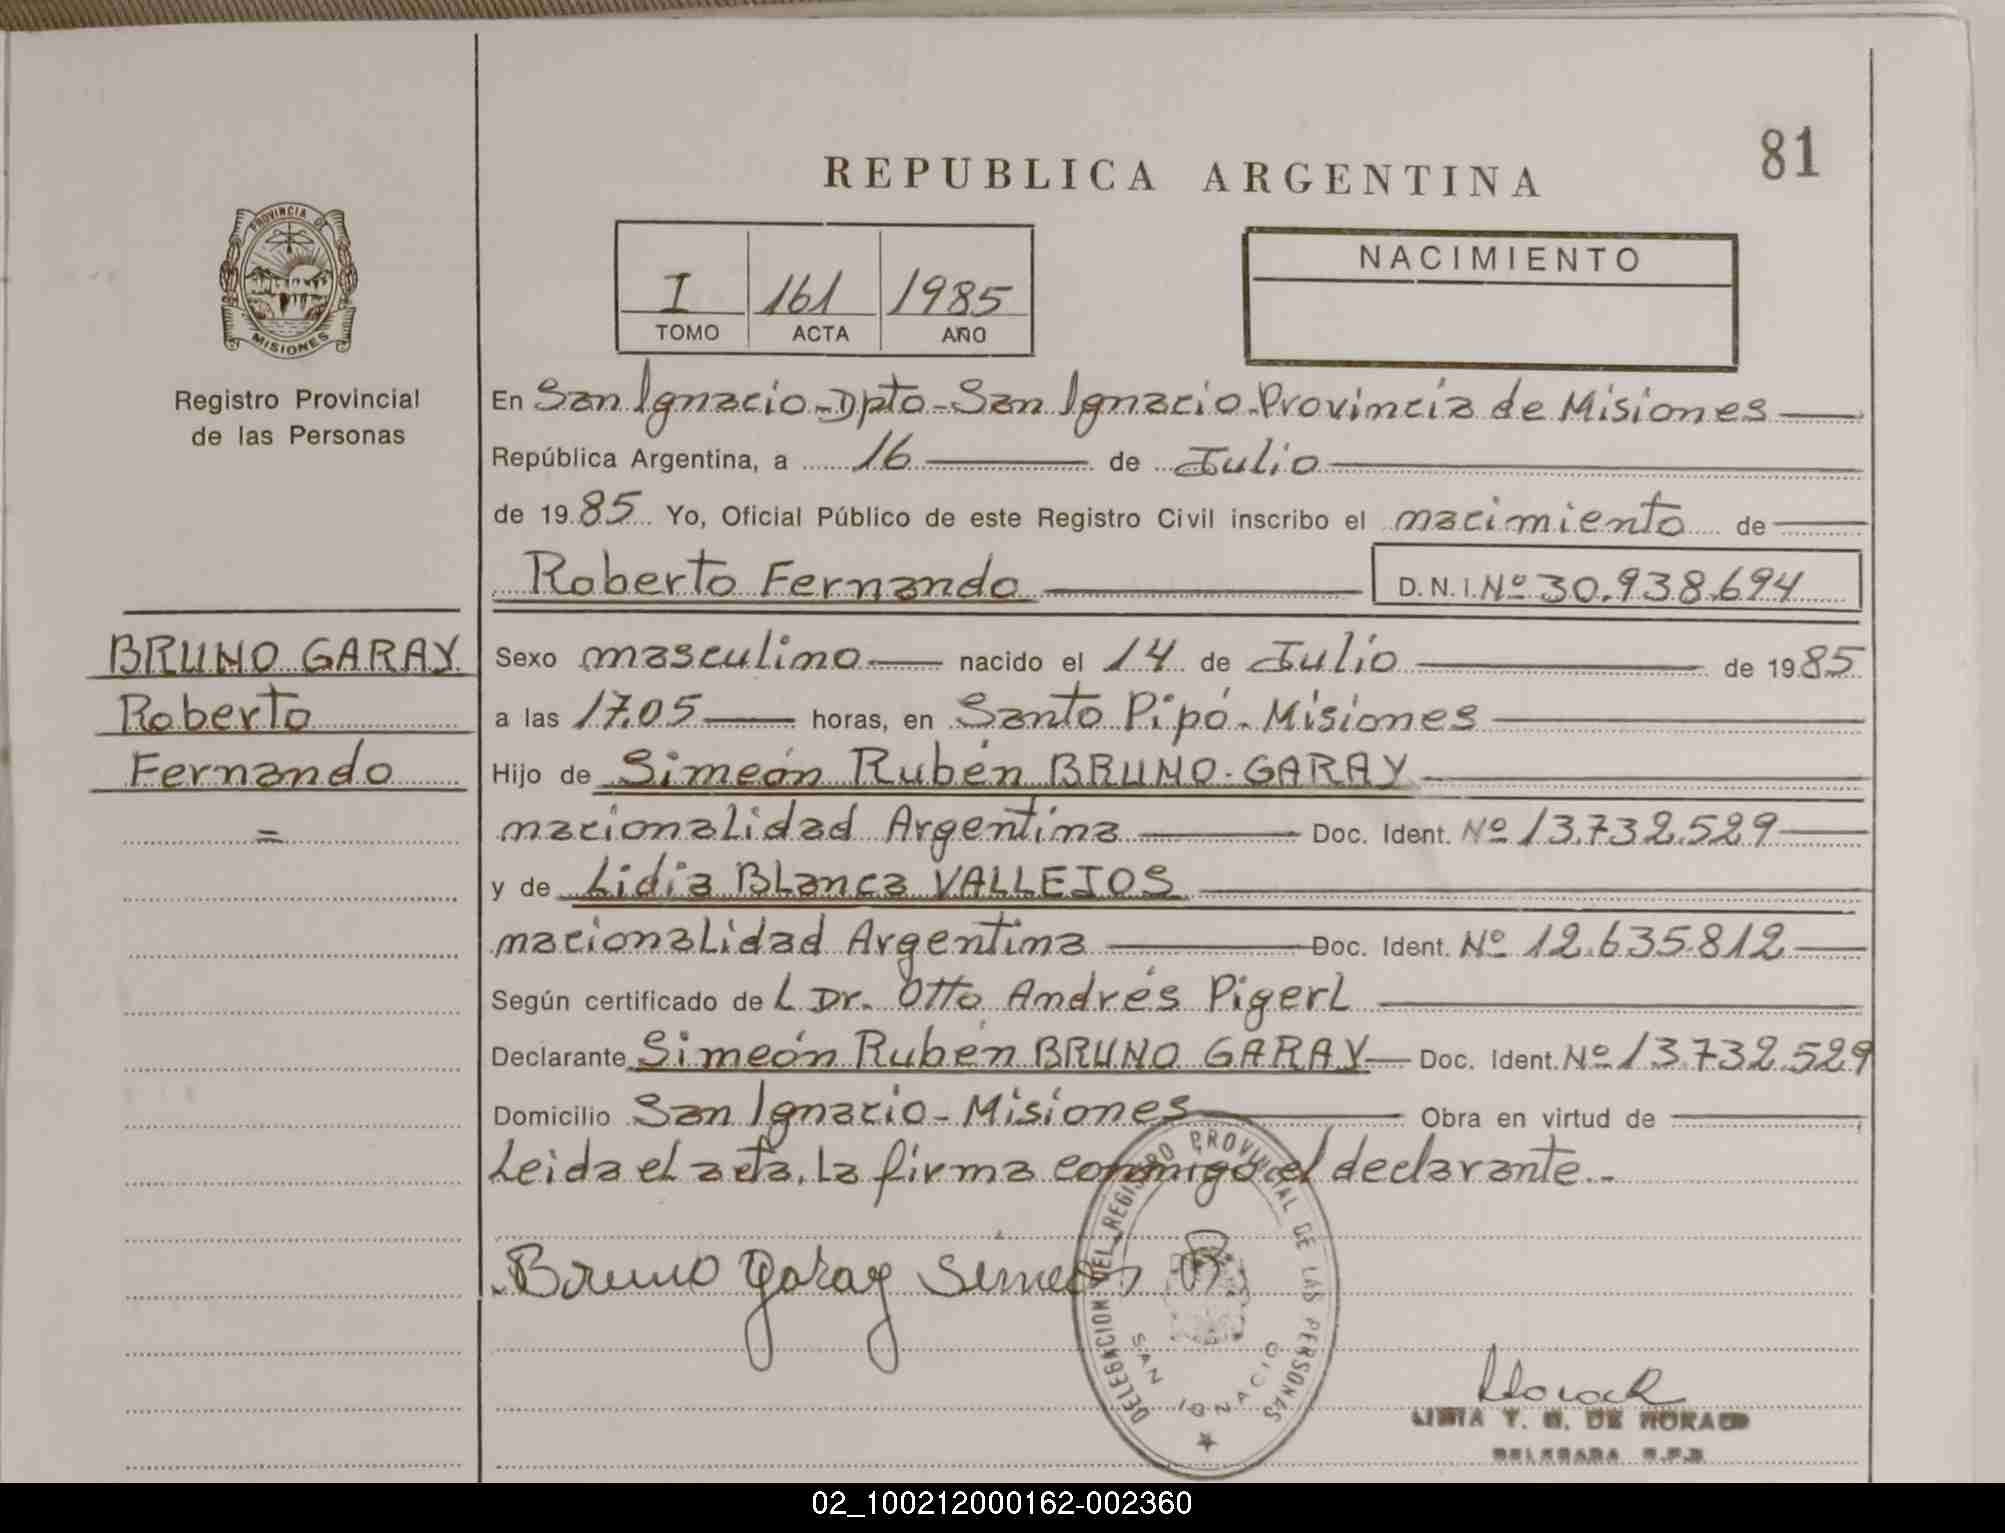 81
REPUBLICA ARGENTINA
PROVINCIA DE
MISIONES
Registro Provincial
de las Personas
I 161 1985
TOMO ACTA AÑO
NACIMIENTO
En San Ignacio-Dpto-San Ignacio-Provincia de Misiones
República Argentina, a 16 de Julio
de 1985 Yo, Oficial Público de este Registro Civil inscribo el nacimiento de
Roberto Fernando D.N.I. Nº 30.938.694
BRUNO GARAY
Roberto
Fernando
=
Sexo masculino nacido el 14 de Julio de 1985
a las 17.05 horas, en Santo Pipó-Misiones
Hijo de Simeón Rubén BRUNO-GARAY
nacionalidad Argentina Doc. Ident. Nº 13.732.529
y de Lidia Blanca VALLEJOS
nacionalidad Argentina Doc. Ident. Nº 12.635.812
Según certificado del Dr. Otto Andrés Pigerl
Declarante Simeón Rubén BRUNO GARAY Doc. Ident. Nº 13.732.529
Domicilio San Ignacio-Misiones Obra en virtud de
Leida el acta, la firma conmigo el declarante.-
Bruno Garay Simeón R
DELEGACION DEL REGISTRO PROVINCIAL DE LAS PERSONAS
SAN IGNACIO
T. DE
02_100212000162-002360